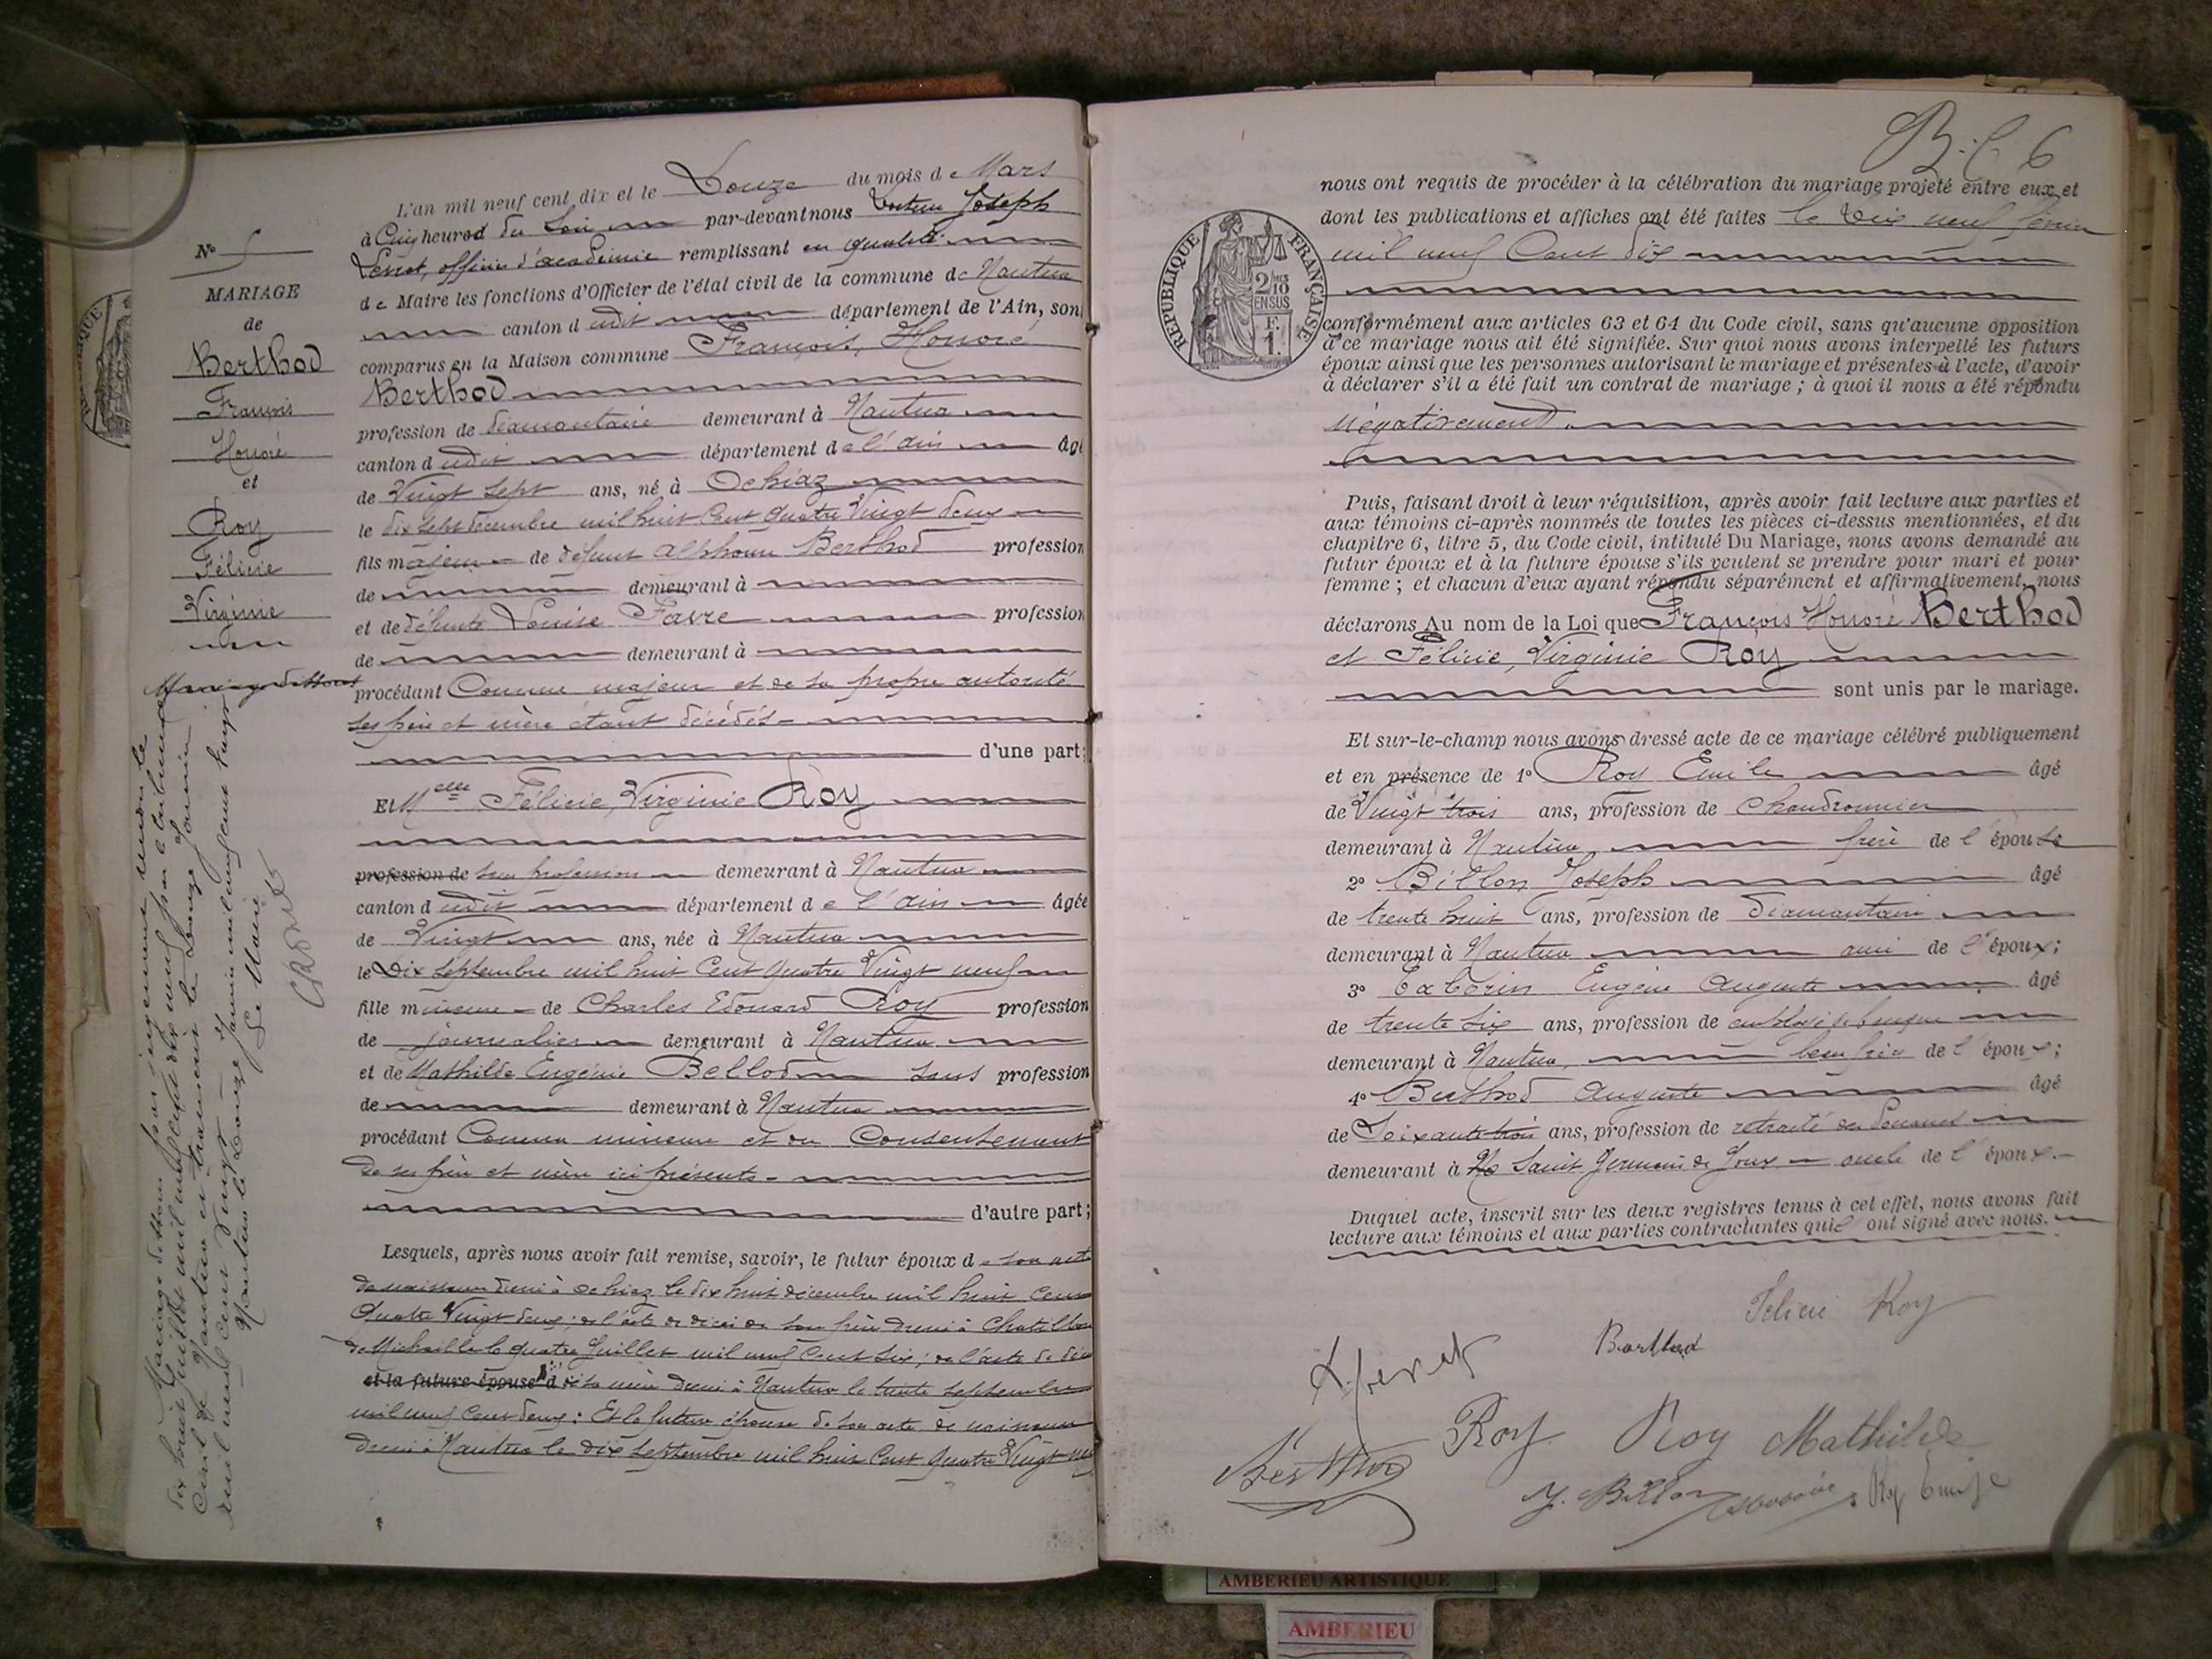 N° 5
MARIAGE
de
Berthod
François
Honoré
et
Roy
Félicie
Virginie
L'an mil neuf cent dix et le Douze du mois de Mars
à Cinq heures du Soir par-devant nous Joseph
officier d'académie remplissant en qualité
de Maire les fonctions d'Officier de l'état civil de la commune de Nantua
canton dudit département de l'Ain, son
comparus en la Maison commune François, Honoré
Berthod
profession de diamantaire demeurant à Nantua
canton dudit département de l'Ain âgé
de Vingt sept ans, né à Ochiaz
le dix sept décembre mil huit Cent quatre Vingt deux
fils majeur de défunt Alphonse Berthod profession
de demeurant à
et de défunte Louise Favre profession
de demeurant à
procédant Comme majeur et de sa propre autorité
ses père et mère étant décédés
d'une part;
Et Melle Félicie, Virginie Roy
profession de sans profession demeurant à Nantua
canton dudit département de l'Ain âgée
de Vingt ans, née à Nantua
le Dix septembre mil huit Cent quatre Vingt neuf
fille mineure de Charles Edouard Roy profession
de journalier demeurant à Nantua
et de Mathilde Eugénie Bellod sans profession
de demeurant à Nantua
procédant Comme mineure et du Consentement
de ses père et mère ici présents
d'autre part;
Lesquels, après nous avoir fait remise, savoir, le futur époux de son acte
de naissance dressé à Ochiaz le dix huit décembre mil huit Cent
Quatre Vingt deux; de l'acte de décès de son père dressé à Chatillon
de Michaille le quatre Juillet mil neuf Cent Six; de l'acte de décès
et la future épouse d de sa mère dressé à Nantua le trente septembre
mil neuf Cent deux: Et la future épouse de son acte de naissance
dressé à Nantua le dix septembre mil huit Cent quatre Vingt neuf
Mariage dissous
Mariage dissous par jugement rendu le
dix huit Juillet mil neuf cent dix neuf par le tribunal
Civil de Nantua et transcrit le Douze Janvier
mil neuf cent vingt
Nantua le Douze Janvier mil neuf cent vingt
Le Maire
B.C. 6
nous ont requis de procéder à la célébration du mariage projeté entre eux et
dont les publications et affiches ont été faites le Dix neuf février
mil neuf Cent dix
conformément aux articles 63 et 64 du Code civil, sans qu'aucune opposition
à ce mariage nous ait été signifiée. Sur quoi nous avons interpellé les futurs
époux ainsi que les personnes autorisant le mariage et présentes à l'acte, d'avoir
à déclarer s'il a été fait un contrat de mariage; à quoi il nous a été répondu
négativement.
Puis, faisant droit à leur réquisition, après avoir fait lecture aux parties et
aux témoins ci-après nommés de toutes les pièces ci-dessus mentionnées, et du
chapitre 6, titre 5, du Code civil, intitulé Du Mariage, nous avons demandé au
futur époux et à la future épouse s'ils veulent se prendre pour mari et pour
femme; et chacun d'eux ayant répondu séparément et affirmativement, nous
déclarons Au nom de la Loi que François Honoré Berthod
et Félicie, Virginie Roy
sont unis par le mariage.
Et sur-le-champ nous avons dressé acte de ce mariage célébré publiquement
et en présence de 1° Roy Emile âgé
de Vingt trois ans, profession de Chaudronnier
demeurant à Nantua, frère de l'épouse
2° Billon Joseph âgé
de trente huit ans, profession de Diamantaire
demeurant à Nantua ami de l'époux;
3° Eugène Auguste âgé
de trente six ans, profession de employé de banque
demeurant à Nantua, beau frère de l'époux;
4° Berthod Auguste âgé
de Soixante trois ans, profession de retraité des Douanes
demeurant à Saint Germain de Joux oncle de l'époux.
Duquel acte, inscrit sur les deux registres tenus à cet effet, nous avons fait
lecture aux témoins et aux parties contractantes qui ont signé avec nous.
Félicie Roy
Berthod
Roy Roy Mathilde
Berthod
J. Billon Roy Emile
RÉPUBLIQUE FRANÇAISE
2/10 MES
EN SUS
F.
1.
AMBERIEU ARTISTIQUE
AMBERIEU